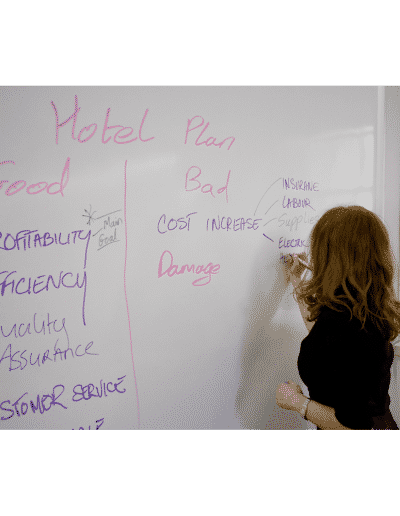 Hotel Plan
Food
Bad
OFITABILITY
Main
Goal
FICIENCY
uality
Assurance
STOMER SERVICE
COST INCREASE
INSURANE
LABOUR
Supplie
ELECTRIC
Damage